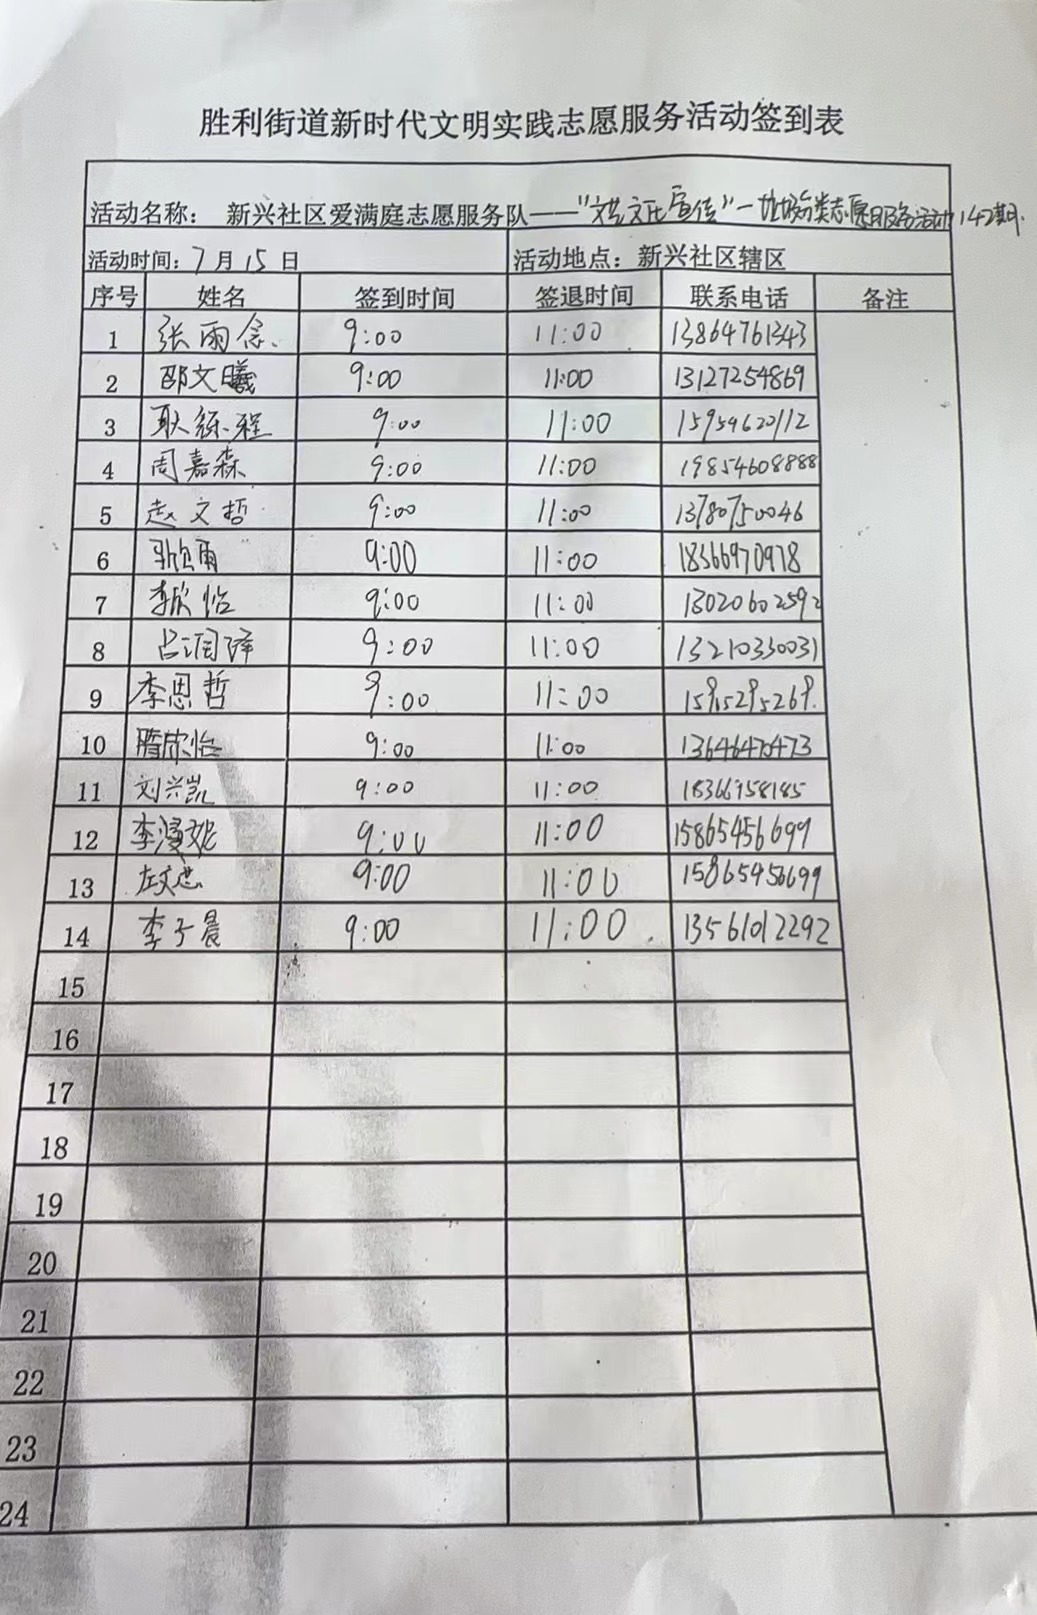 胜利街道新时代文明实践志愿服务活动签到表
活动名称： 新兴社区爱满庭志愿服务队——“文艺文化宣传”—垃圾分类志愿服务活动142期.
活动时间：7月15日 活动地点：新兴社区辖区
序号 姓名 签到时间 签退时间 联系电话 备注
1 张雨念 9:00 11:00 13864761343
2 邵文曦 9:00 11:00 13127254869
3 耿程 9:00 11:00 15954620112
4 周嘉森 9:00 11:00 19854608888
5 赵文哲 9:00 11:00 13780750046
6 欣雨 9:00 11:00 18366970978
7 李欣怡 9:00 11:00 13020602592
8 吕润泽 9:00 11:00 13210330031
9 李思哲 9:00 11:00 15915295269.
10 隋欣怡 9:00 11:00 13646470473
11 刘兴凯 9:00 11:00 18366958185
12 李漫妮 9:00 11:00 15865456699
13 9:00 11:00 15865456699
14 李子晨 9:00 11:00 13561012292
15
16
17
18
19
20
21
22
23
24